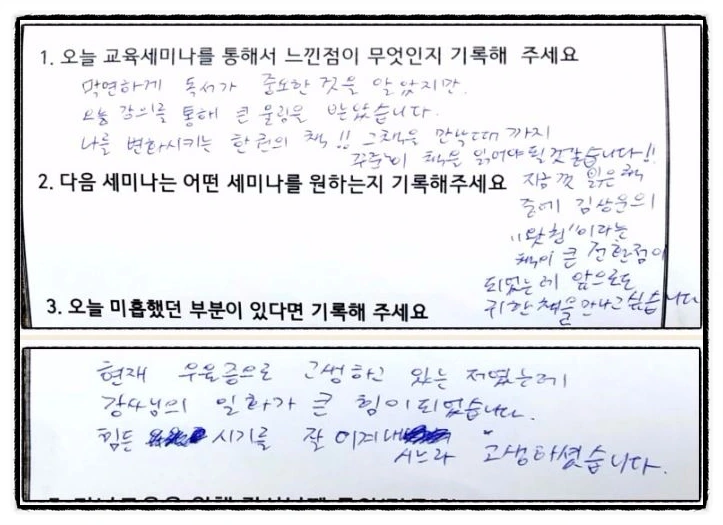 1. 오늘 교육세미나를 통해서 느낀점이 무엇인지 기록해 주세요
막연하게 독서가 중요한 것을 알았지만.
오늘 강의를 통해 큰 울림을 받았습니다.
나를 변화시키는 한권의 책!! 그책을 만날때 까지
꾸준히 책을 읽어야 될것같습니다!!
지금껏 읽은 책
중에 김상운의
"왓칭"이라는
책이 큰 전환점이
되었는데 앞으로도
귀한책을 만나고 싶습니다
2. 다음 세미나는 어떤 세미나를 원하는지 기록해주세요
3. 오늘 미흡했던 부분이 있다면 기록해 주세요
현재 우울증으로 고생하고 있는 저였는데
강사님의 일화가 큰 힘이 되었습니다.
힘든 시기를 잘 이겨내
시느라 고생하셨습니다.